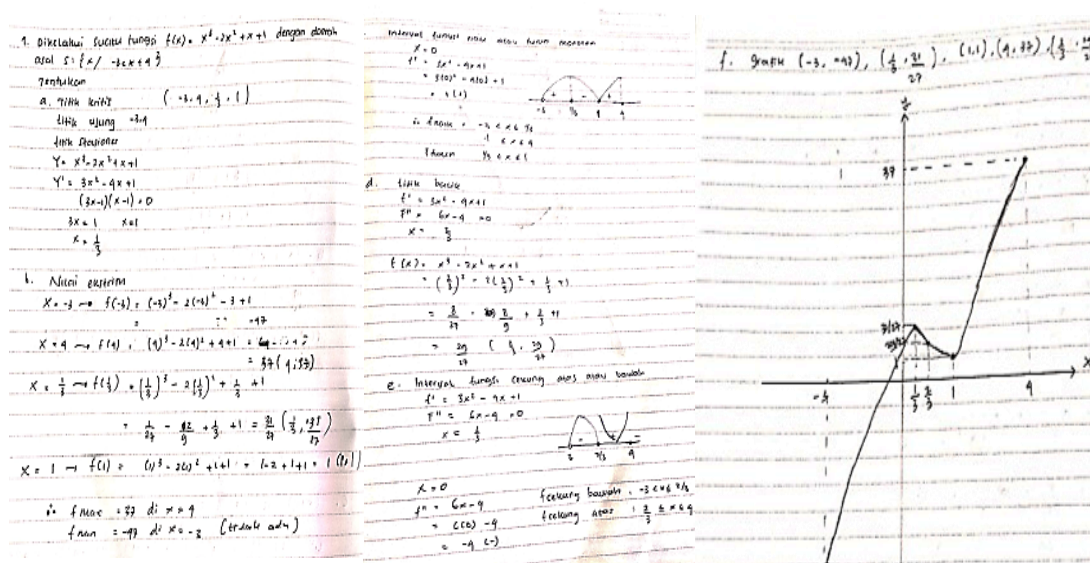 1. Diketahui suatu fungsi f(x) = x³-2x²+x+1 dengan daerah
asal S: {x/ -3≤x≤4}
Tentukan
a. titik kritis (-3, 4, 1/3, 1)
titik ujung -3,4
titik stasioner
Y = x³-2x²+x+1
Y' = 3x²-4x+1
(3x-1)(x-1)=0
3x=1 x=1
x = 1/3
b. Nilai ekstrim
X = -3 → f(-3) = (-3)³-2(-3)²-3+1
= -47
X = 4 → f(4) = (4)³-2(4)²+4+1 =
= 37 (4,37)
X = 1/3 → f(1/3) = (1/3)³ - 2(1/3)² + 1/3 + 1
= 1/27 - 2/9 + 1/3 + 1 = 31/27
X = 1 → f(1) = (1)³-2(1)²+1+1 = 1-2+1+1 = 1 (1,1)
∴ f max = 37 di x = 4
f min = -47 di x = -3 (tidak ada)
Interval fungsi naik atau turun monoton
X = 0
f' = 3x²-4x+1
= 3(0)²-4(0)+1
= 1 (+)
∴ f naik = -3 < x ≤ 1/3
1 ≤ x ≤ 4
f turun 1/3 ≤ x ≤ 1
d. titik belok
f' = 3x²-4x+1
f'' = 6x-4 = 0
x = 2/3
f(x) = x³-2x²+x+1
+ 2/3 + 1
= 8/27 - 8/9 + 2/3 + 1
= 29/27
e. Interval fungsi cekung atas atau bawah
f' = 3x²-4x+1
f'' = 6x-4 = 0
x =
2/3 4
X = 0
f'' = 6x-4
= 6(0)-4
= -4 (-)
f cekung bawah : -3 < x ≤ 2/3
f cekung atas : 2/3 ≤ x ≤ 4
f. grafik (-3, -47), (1/3, 31/27), (1,1), (4,37)
y
37
31/27
29/27
1/3 2/3 1 4 X